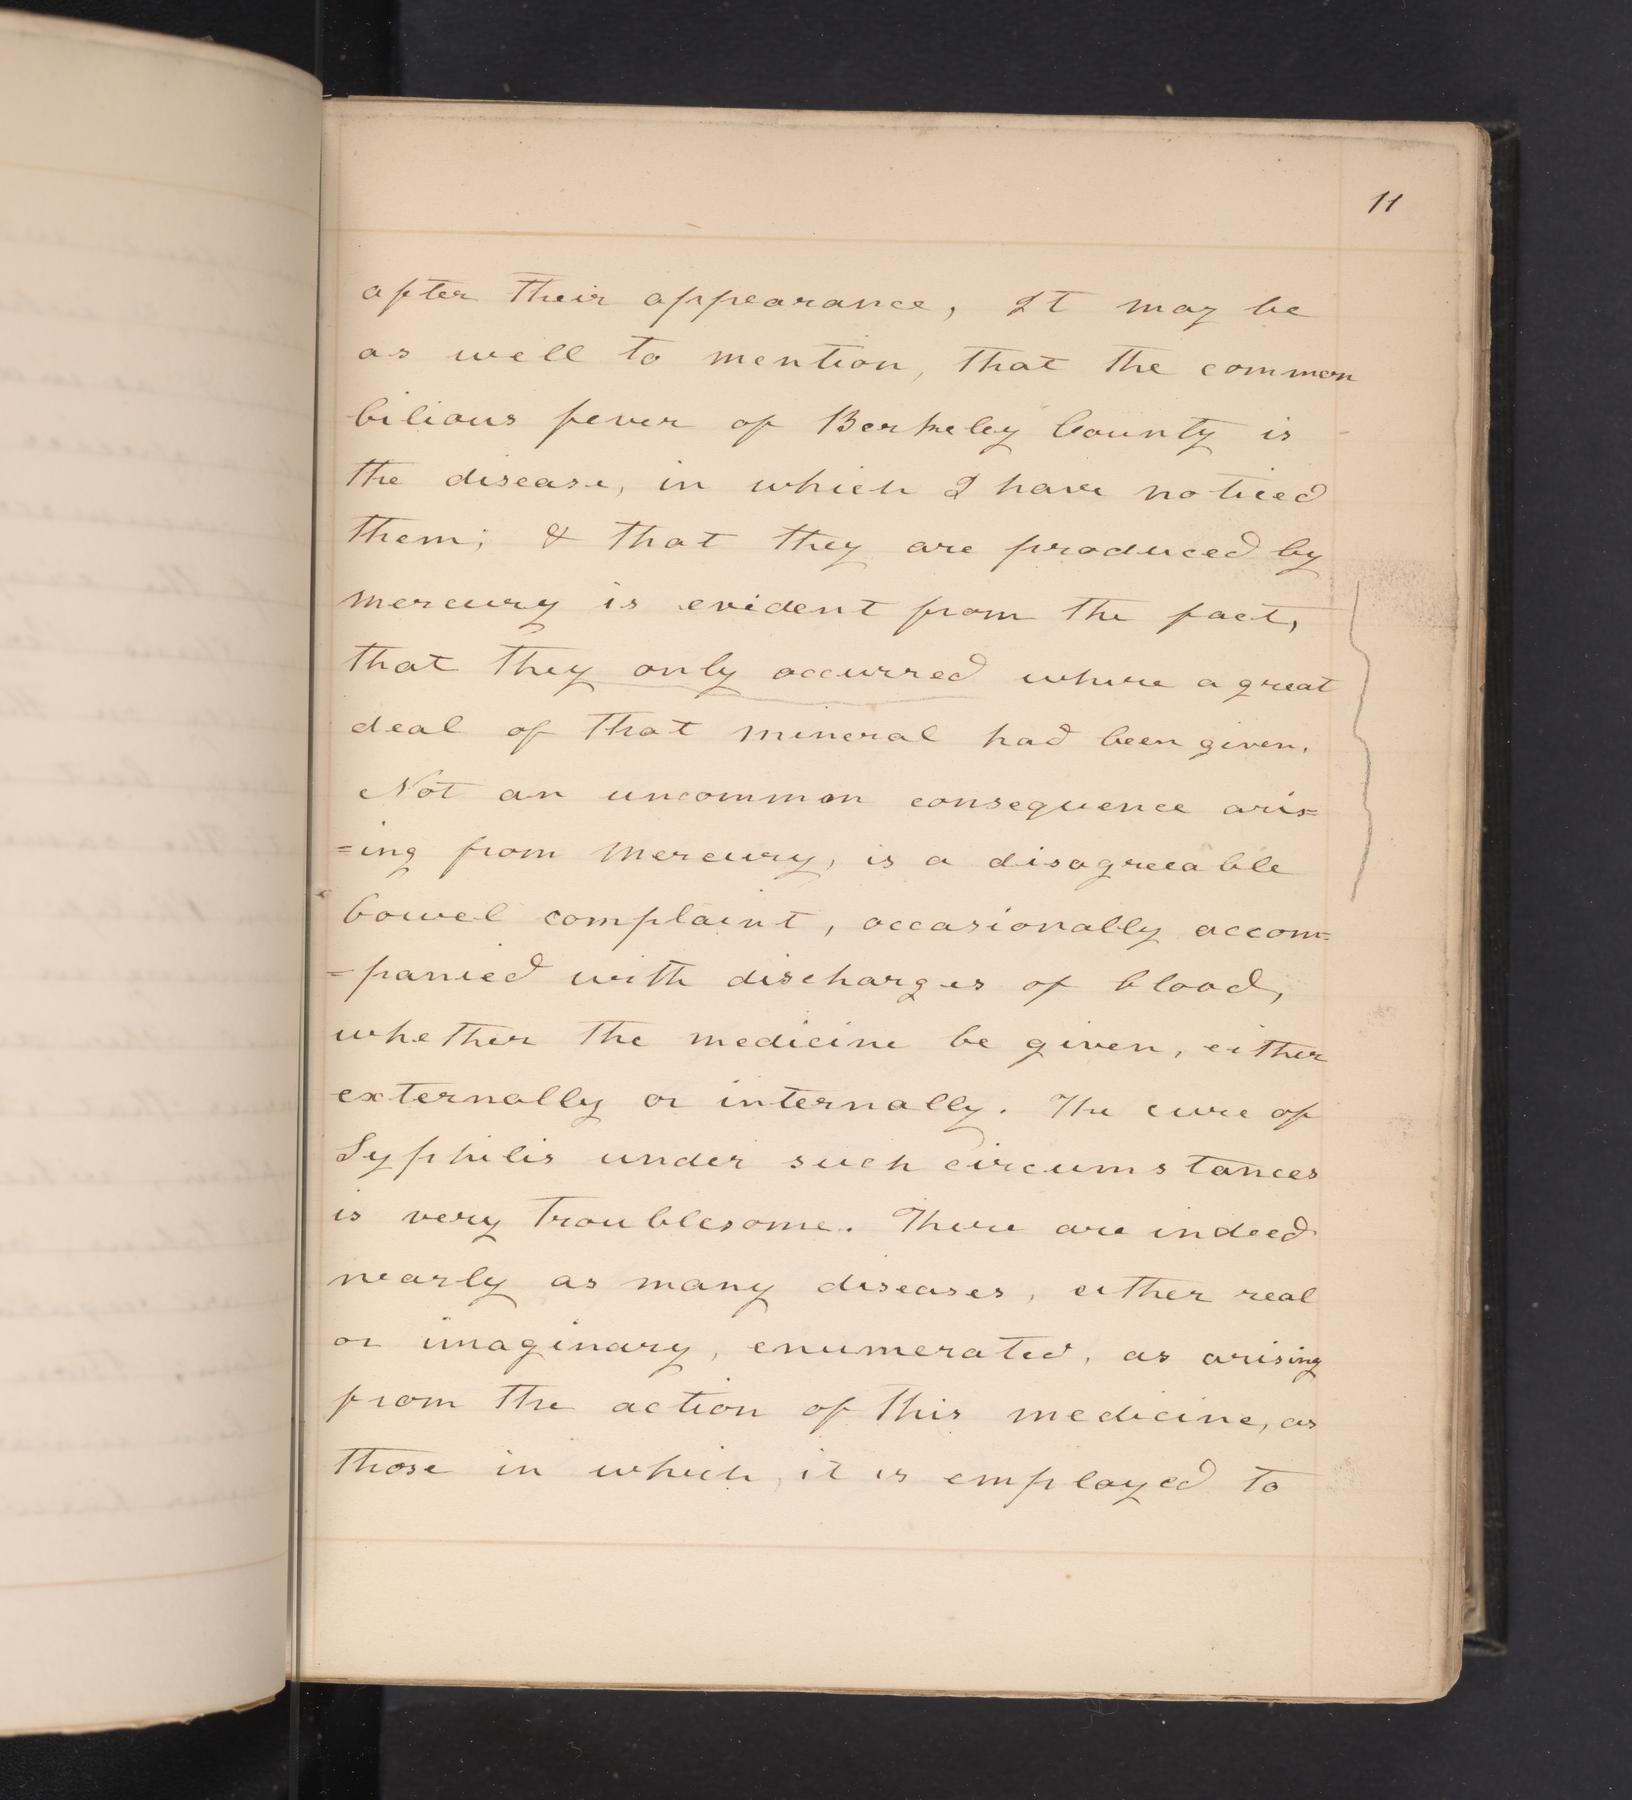 11
after their appearance, It may be
as well to mention, that the common
bilious fever of Berkeley County is
the disease, in which I have noticed
them; & that they are produced by
mercury is evident from the fact,
that they only occurred where a great
deal of that mineral had been given.
Not an uncommon consequence aris=
=ing from Mercury, is a disagreeable
bowel complaint, occasionally accom=
=panied with discharges of blood,
whether the medicine be given, either
externally or internally. The cure of
Syphilis under such circumstances
is very troublesome. There are indeed
nearly as many diseases, either real
or imaginary, enumerated, as arising
from the action of this medicine, as
those in which, it is employed to